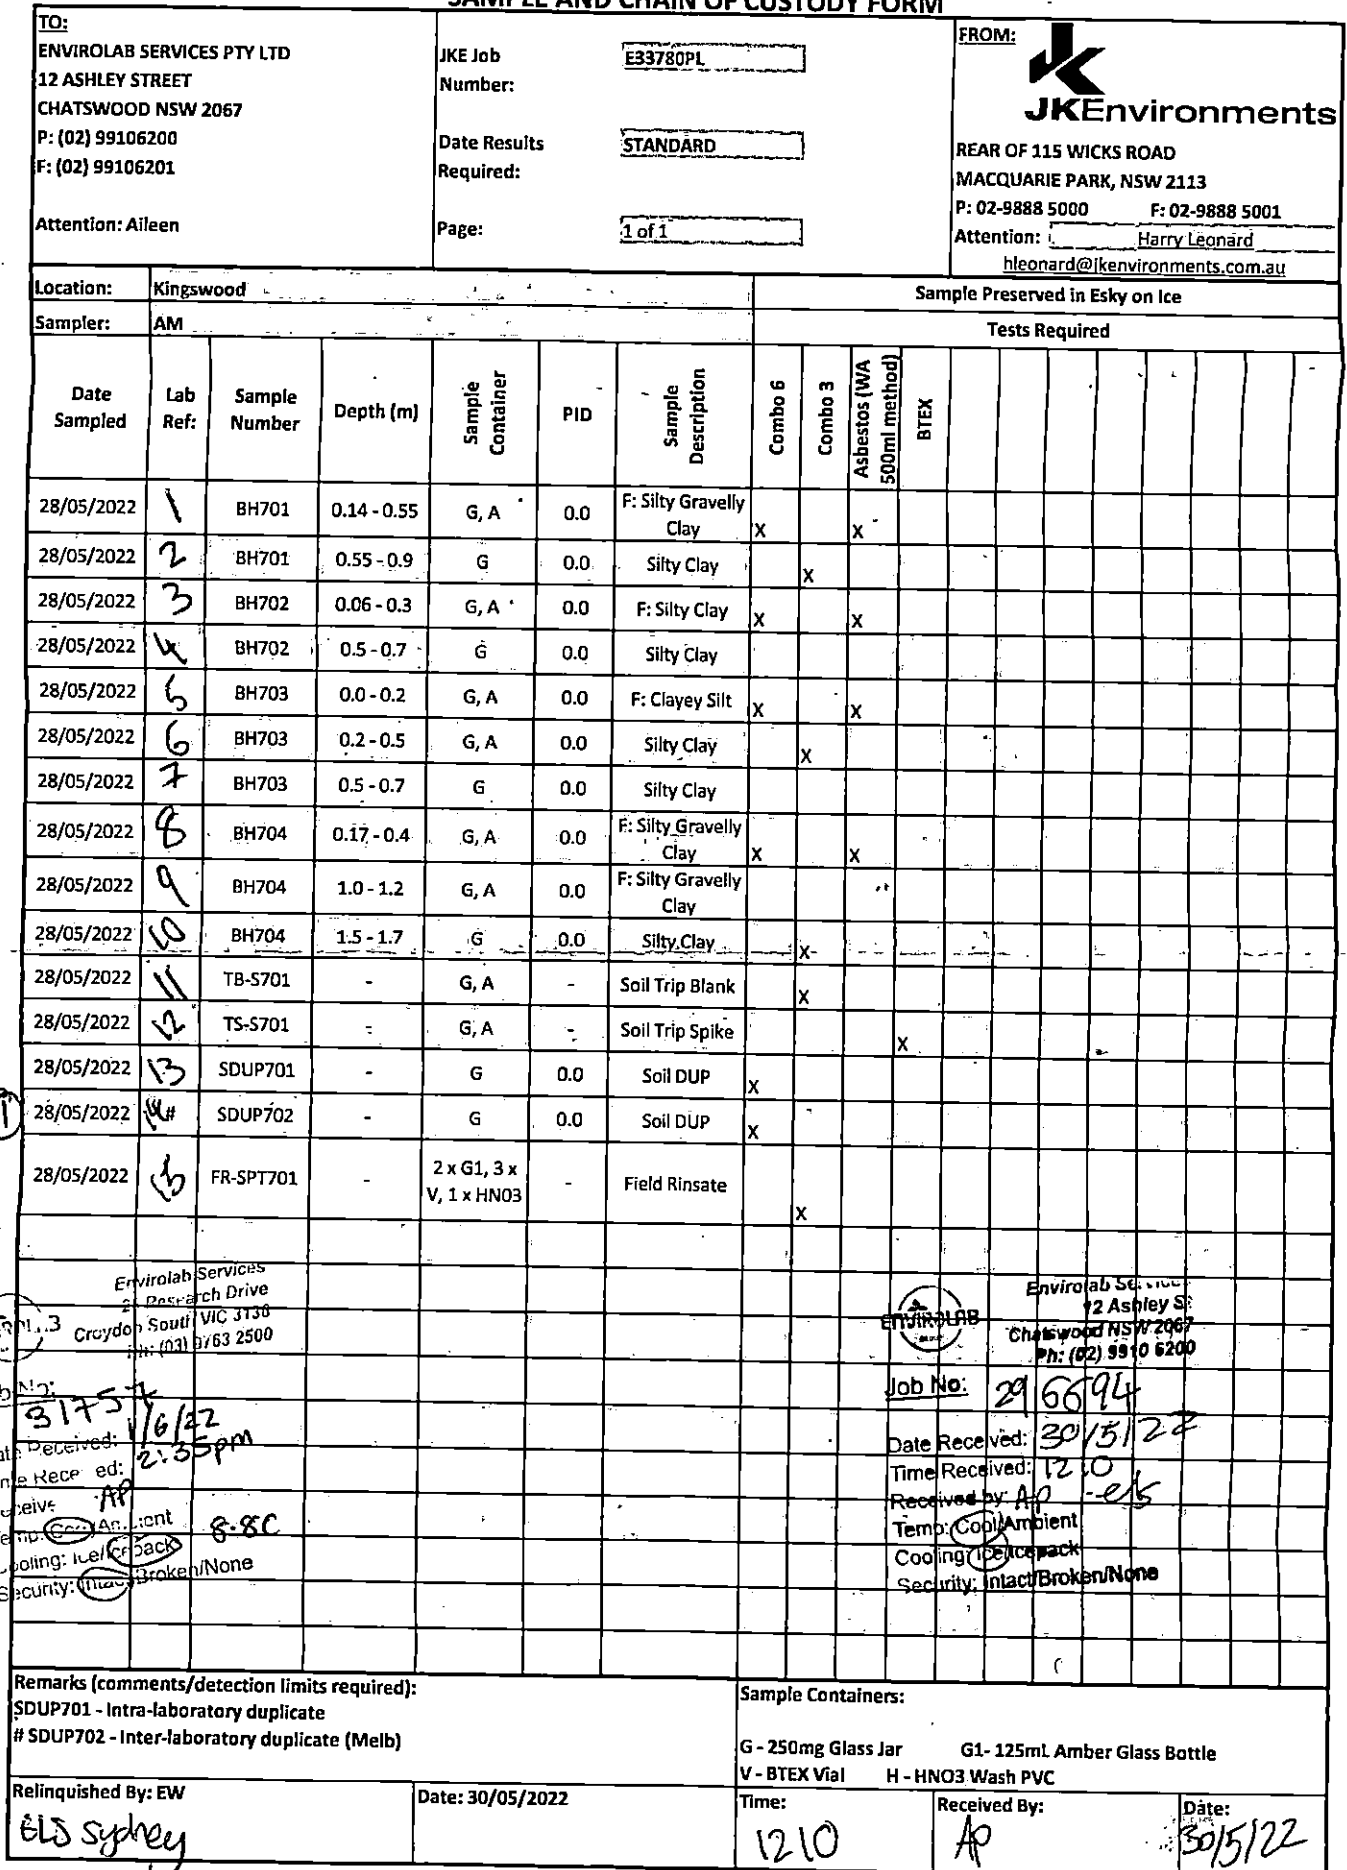 SAMPLE AND CHAIN OF CUSTODY FORM
TO:
ENVIROLAB SERVICES PTY LTD
12 ASHLEY STREET
CHATSWOOD NSW 2067
P: (02) 99106200
F: (02) 99106201
Attention: Aileen
JKE Job Number: E33780PL
Date Results Required: STANDARD
Page: 1 of 1
FROM:
JKEnvironments
REAR OF 115 WICKS ROAD
MACQUARIE PARK, NSW 2113
P: 02-9888 5000 F: 02-9888 5001
Attention: Harry Leonard
hleonard@jkenvironments.com.au
Location: Kingswood
Sample Preserved in Esky on Ice
Sampler: AM
Tests Required
Date Sampled Lab Ref: Sample Number Depth (m) Sample Container PID Sample Description Combo 6 Combo 3 Asbestos (WA 500ml method) BTEX
28/05/2022 1 BH701 0.14 - 0.55 G, A 0.0 F: Silty Gravelly Clay X X
28/05/2022 2 BH701 0.55 - 0.9 G 0.0 Silty Clay X
28/05/2022 3 BH702 0.06 - 0.3 G, A 0.0 F: Silty Clay X X
28/05/2022 4 BH702 0.5 - 0.7 G 0.0 Silty Clay
28/05/2022 5 BH703 0.0 - 0.2 G, A 0.0 F: Clayey Silt X X
28/05/2022 6 BH703 0.2 - 0.5 G, A 0.0 Silty Clay X
28/05/2022 7 BH703 0.5 - 0.7 G 0.0 Silty Clay
28/05/2022 8 BH704 0.17 - 0.4 G, A 0.0 F: Silty Gravelly Clay X X
28/05/2022 9 BH704 1.0 - 1.2 G, A 0.0 F: Silty Gravelly Clay
28/05/2022 10 BH704 1.5 - 1.7 G 0.0 Silty Clay X
28/05/2022 11 TB-S701 - G, A - Soil Trip Blank X
28/05/2022 12 TS-S701 - G, A - Soil Trip Spike X
28/05/2022 13 SDUP701 - G 0.0 Soil DUP X
28/05/2022 14# SDUP702 - G 0.0 Soil DUP X
28/05/2022 15 FR-SPT701 - 2 x G1, 3 x V, 1 x HN03 - Field Rinsate X
Envirolab Services
Research Drive
Croydon South VIC 3136
(03) 9763 2500
31757
1/6/22
2:35pm
AP
8.8C
Icepack
Security: Intact/Broken/None
ENVIROLAB
Envirolab Services
12 Ashley St
Chatswood NSW 2067
Ph: (02) 9910 6200
Job No: 296694
Date Received: 30/5/22
Time Received: 1210
Received by: AP
Temp: Cool/Ambient
Cooling: Ice/Icepack
Security: Intact/Broken/None
Remarks (comments/detection limits required):
SDUP701 - Intra-laboratory duplicate
# SDUP702 - Inter-laboratory duplicate (Melb)
Sample Containers:
G - 250mg Glass Jar G1- 125mL Amber Glass Bottle
V - BTEX Vial H - HNO3 Wash PVC
Relinquished By: EW
ELS sydney
Date: 30/05/2022
Time:
1210
Received By:
AP
Date:
30/5/22